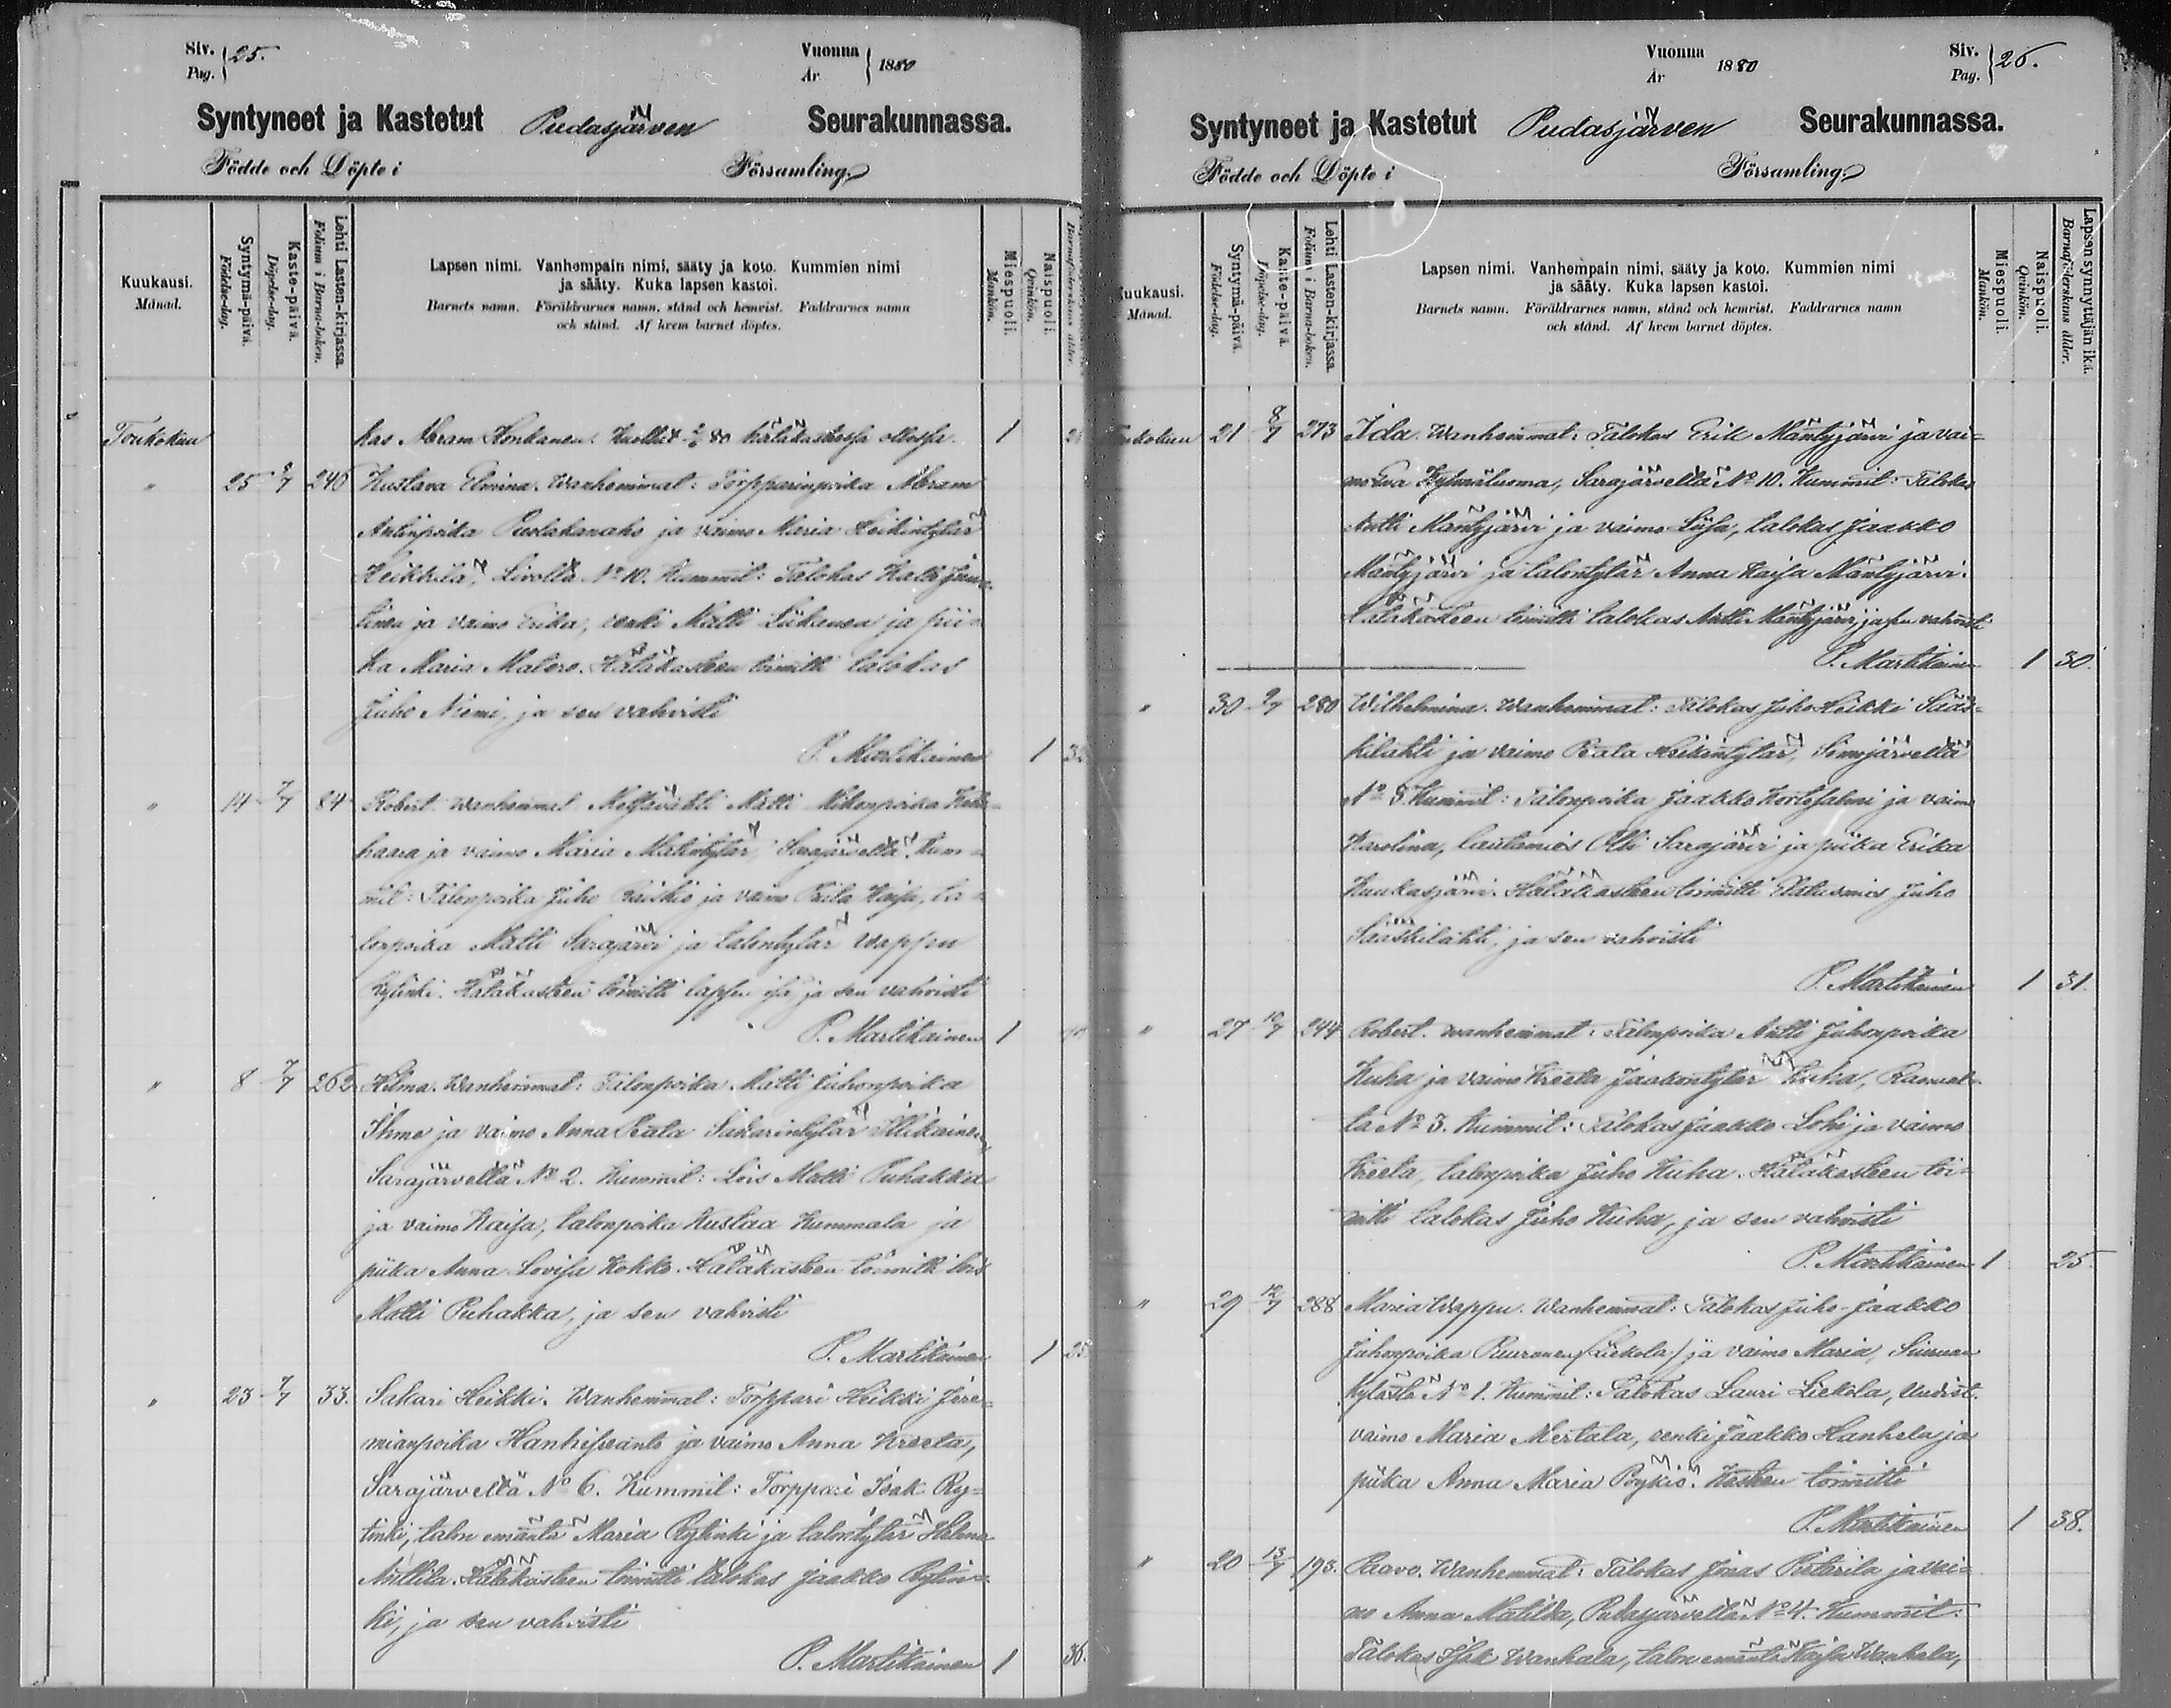 Siv. Pag. 25.
Vuonna År 1880
Syntyneet ja Kastetut Pudasjärven Seurakunnassa.
Födde och Döpte i Församling
Kuukausi. Månad.
Syntymä-päivä. Födelse-dag.
Kaste-päivä. Döpelse-dag.
Lehti Lasten-kirjassa. Folium i Barna-boken.
Lapsen nimi. Vanhempain nimi, sääty ja koto. Kummien nimi
ja sääty. Kuka lapsen kastoi.
Barnets namn. Föräldrarnes namn, stånd och hemvist. Faddrarnes namn
och stånd. Af hvem barnet döptes.
Miespuoli. Mankön.
Naispuoli. Qvinkön.
Barnaföderskans ålder.
Toukokuu kas Abram Honkanen. Kuollut 80 hätäkasteessa ollessa. 1
" 25 8/7 246 Kustava Elmina. Wanhemmat: Torpparinpoika Abram
Antinpoika Puolakanaho ja vaimo Maria Heikintytär
Heikkilä, Livolta No 10. Kummit: Talokas Matti
ja vaimo Erika, renki Matti Liikanen ja pii-
ka Maria Matero. Hätäkasteen toimitti talokas
Juho Niemi, ja sen vahvisti
P. Martikainen 1 32
" 14 7/7 84 Robert. Wanhemmat Metsävahti Matti
haara ja vaimo Maria Matintytär, Sarajärveltä. Kum-
mit: Talonpoika Juho Räiskiö ja vaimo Kaisa, ta-
lonpoika Matti Sarajärvi ja talontytär Wappu
Rytinki. Hätäkasteen toimitti lapsen isä, ja sen vahvisti
P. Martikainen 1
" 8 7/7 262 Hilma. Wanhemmat: Talonpoika Matti Juhonpoika
Ihme ja vaimo Anna Peata Sakarintytär Illikainen,
Sarajärveltä No 2. Kummit: Lois Matti Puhakka
ja vaimo Kaisa, talonpoika Kustaa Kummala ja
piika Anna Lovisa Kokko. Hätäkasteen toimitti lois
Matti Puhakka, ja sen vahvisti
P. Martikainen 1 25
" 23 7/7 33. Sakari Heikki. Wanhemmat: Torppari Heikki Jere-
mianpoika ja vaimo Anna Kreeta,
Sarajärveltä No 6. Kummit: Torppari Isak Ry-
tinki, talon emäntä Maria Rytinki ja talontytär Helena
Anttila. Hätäkasteen toimitti talokas Jaakko Rytin-
ki, ja sen vahvisti
P. Martikainen 1 36.
Vuonna År 1880
Siv. Pag. 26.
Syntyneet ja Kastetut Pudasjärven Seurakunnassa.
Födde och Döpte i Församling
Kuukausi. Månad.
Syntymä-päivä. Födelse-dag.
Kaste-päivä. Döpelse-dag.
Lehti Lasten-kirjassa. Folium i Barna-boken.
Lapsen nimi. Vanhempain nimi, sääty ja koto. Kummien nimi
ja sääty. Kuka lapsen kastoi.
Barnets namn. Föräldrarnes namn, stånd och hemvist. Faddrarnes namn
och stånd. Af hvem barnet döptes.
Miespuoli. Mankön.
Naispuoli. Qvinkön.
Lapsen synnyttäjän ikä. Barnaföderskans ålder.
21 8/7 273 Ida. Wanhemmat: Talokas Erik Mäntyjärvi ja vai-
mo Eva Kylmäluoma, Sarajärveltä No 10. Kummit: Talokas
Antti Mäntyjärvi ja vaimo Liisa, talokas Jaakko
Mäntyjärvi ja talontytär Anna Kaisa Mäntyjärvi.
Hätäkasteen toimitti talokas Antti Mäntyjärvi, ja sen vahvisti
P. Martikainen 1 30.
" 30 9/7 280 Wilhelmina. Wanhemmat: Talokas Juho Heikki Sääs-
kilahti ja vaimo Peata Heikintytär, Simojärveltä
No 5. Kummit: Talonpoika Jaakko Kortesalmi ja vaimo
Karolina, lautamies Olli Sarajärvi ja piika Erika
Kuukasjärvi. Hätäkasteen toimitti Elatusmies Juho
Sääskilahti, ja sen vahvisti
P. Martikainen 1 31.
" 27 10/7 244 Robert. Wanhemmat: Talonpoika Antti Juhonpoika
Kuha ja vaimo Kreeta Jaakontytär Kuha, Ranual-
ta No 3. Kummit: Talokas Jaakko Lohi ja vaimo
Kreeta, talonpoika Juho Kuha. Hätäkasteen toi-
mitti talokas Juho Kuha, ja sen vahvisti
P. Martikainen 1 25.
" 29 12/7 288 Maria Wappu. Wanhemmat: Talokas Juho Jaakko
Juhonpoika Puuronen (Liekola) ja vaimo Maria, Siuruan
kylästä No 1. Kummit: Talokas Lauri Liekola, Uudist.
vaimo Maria Mertala, renki Jaakko Hanhela ja
piika Anna Maria Pöykiö. Kasteen toimitti
P. Martikainen 1 38.
" 20 13/7 193. Paavo. Wanhemmat: Talokas Jonas Pietarila ja vai-
mo Anna Matilda, Pudasjärveltä No 4. Kummit:
Talokas Isak Wanhala, talon emäntä Kaisa Wanhala,